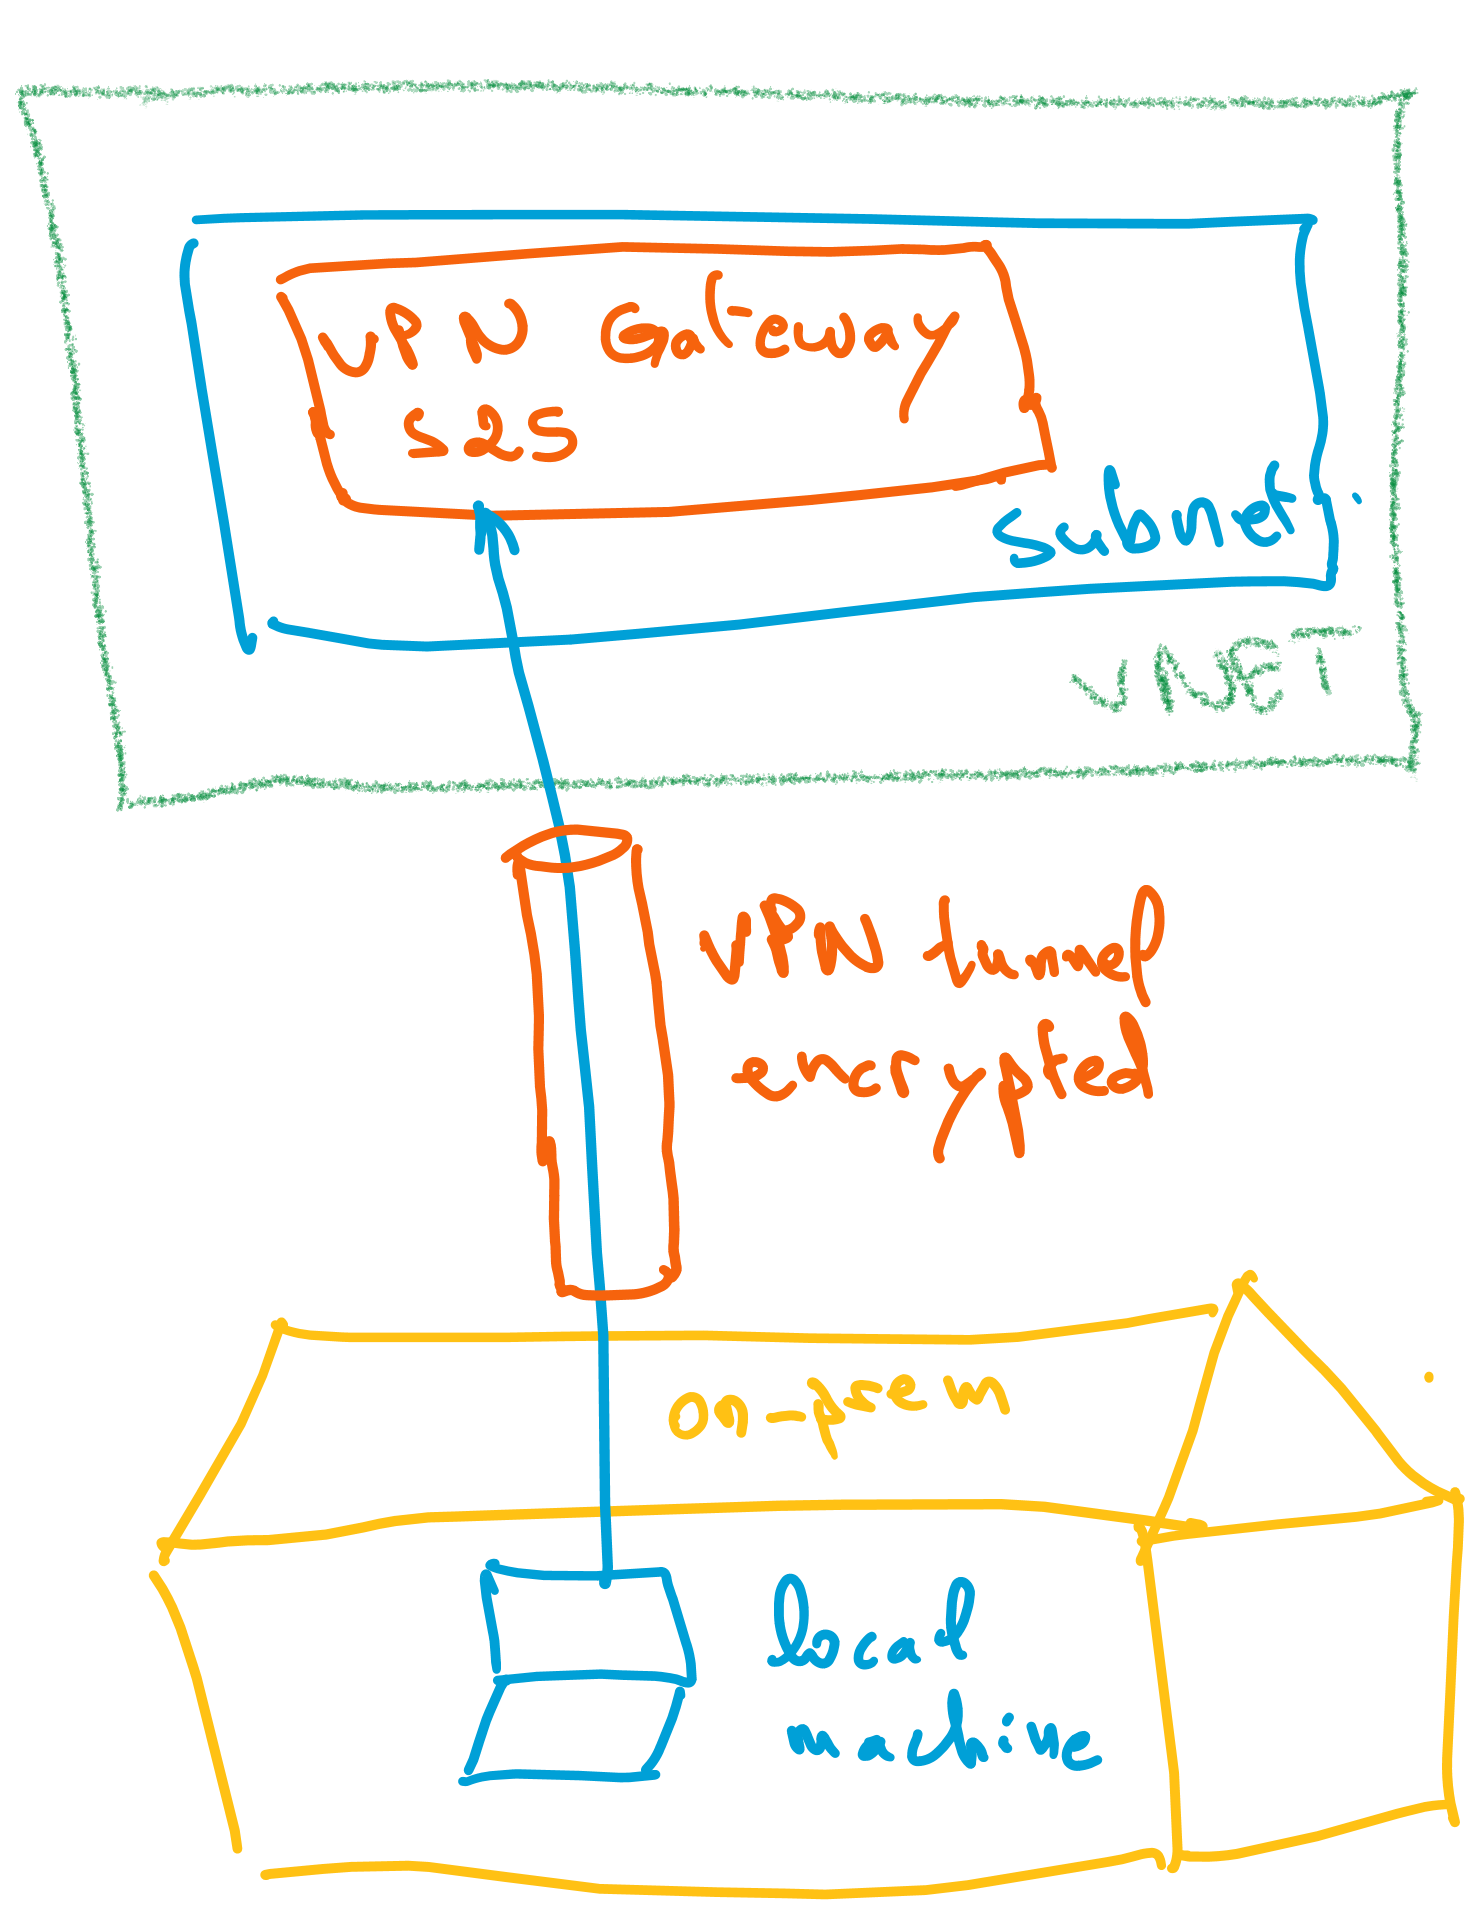 VPN Gateway
S2S
Subnet
VNET
VPN tunnel
encrypted
on-prem
local
machine